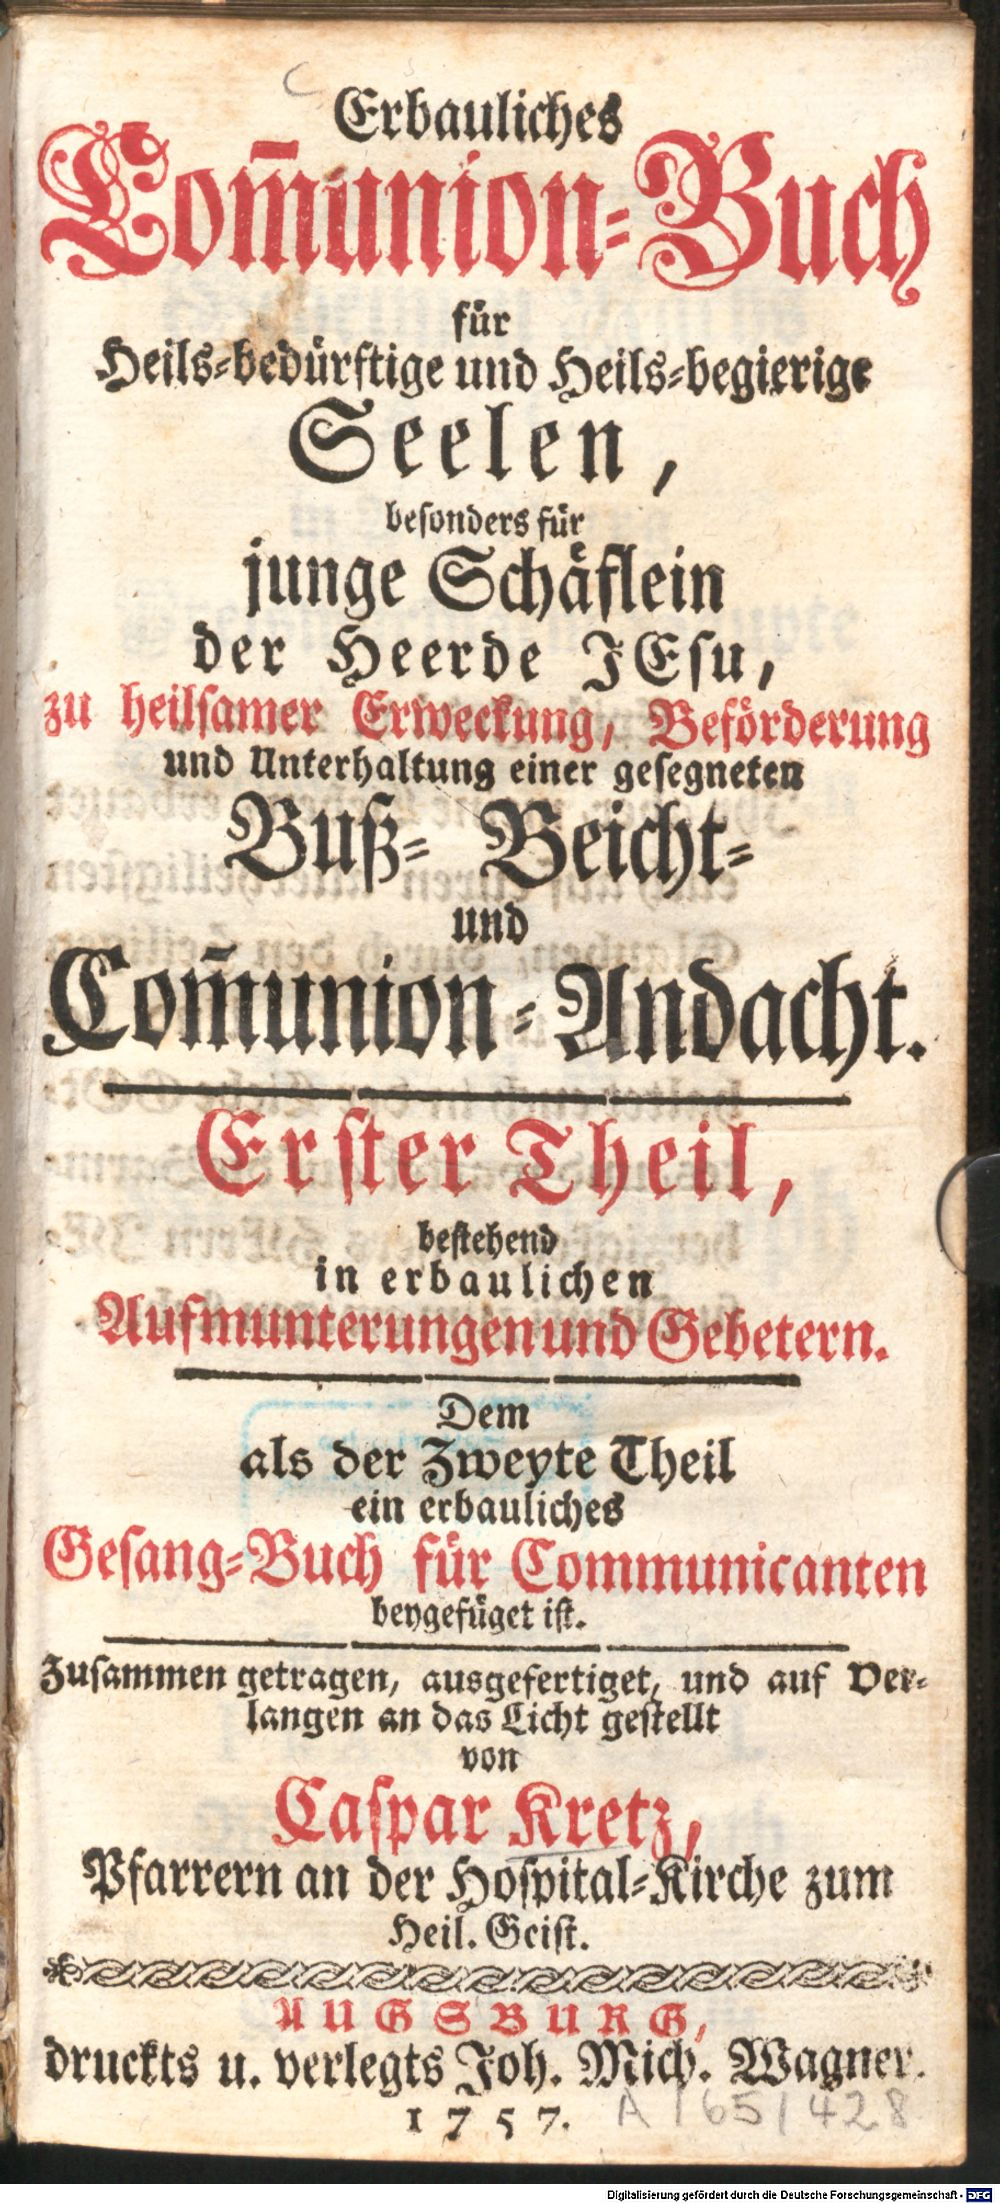 Erbauliches
Com̄union-Buch
für
Heils-bedürftige und Heils-begierige
Seelen,
besonders für
junge Schäflein
der Heerde JEsu,
zu heilsamer Erweckung, Beförderung
und Unterhaltung einer gesegneten
Buß- Beicht-
und
Com̄union-Andacht.
Erster Theil,
bestehend
in erbaulichen
Aufmunterungen und Gebetern.
Dem
als der Zweyte Theil
ein erbauliches
Gesang-Buch für Communicanten
beygefüget ist.
Zusammen getragen, ausgefertiget, und auf Ver-
langen an das Licht gestellt
von
Caspar Kretz,
Pfarrern an der Hospital-Kirche zum
Heil. Geist.
AUGSBURG,
druckts u. verlegts Joh. Mich. Wagner.
1757.
A 165/428
Digitalisierung gefördert durch die Deutsche Forschungsgemeinschaft - DFG